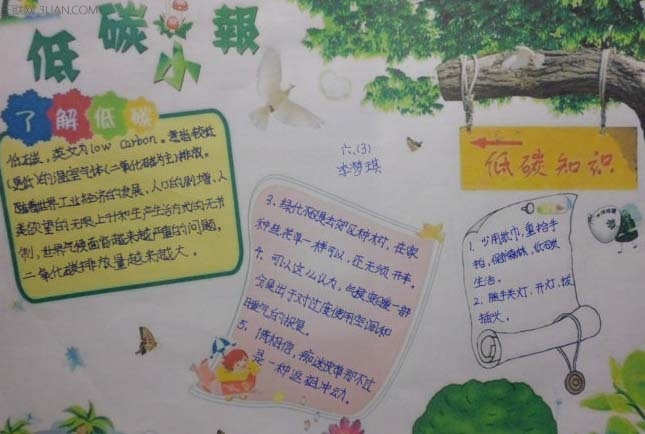 3LIAN.COM
低碳小報
了解低碳
低碳，英文为low carbon。意指较低
(更低)的温室气体(二氧化碳为主)排放。
随着世界工业经济的发展，人口的剧增，人
类欲望的无限上升和生产生活方式的无节
制，世界气候面临越来越严重的问题，
二氧化碳排放量越来越大。
六.(3)
李梦琪
3、绿化不仅去郊区种树，在家
种些花草一样可以，还无须开车。
4、可以这么认为，气候变暖一部
分是出于对过度使用空调和
暖气的报复。
5、请相信，痴迷皮草那不过
是一种返祖冲动。
低碳知识
1、少用纸巾，重拾手
帕，保护森林，低碳
生活。
2、随手关灯、开灯、拔
插头。